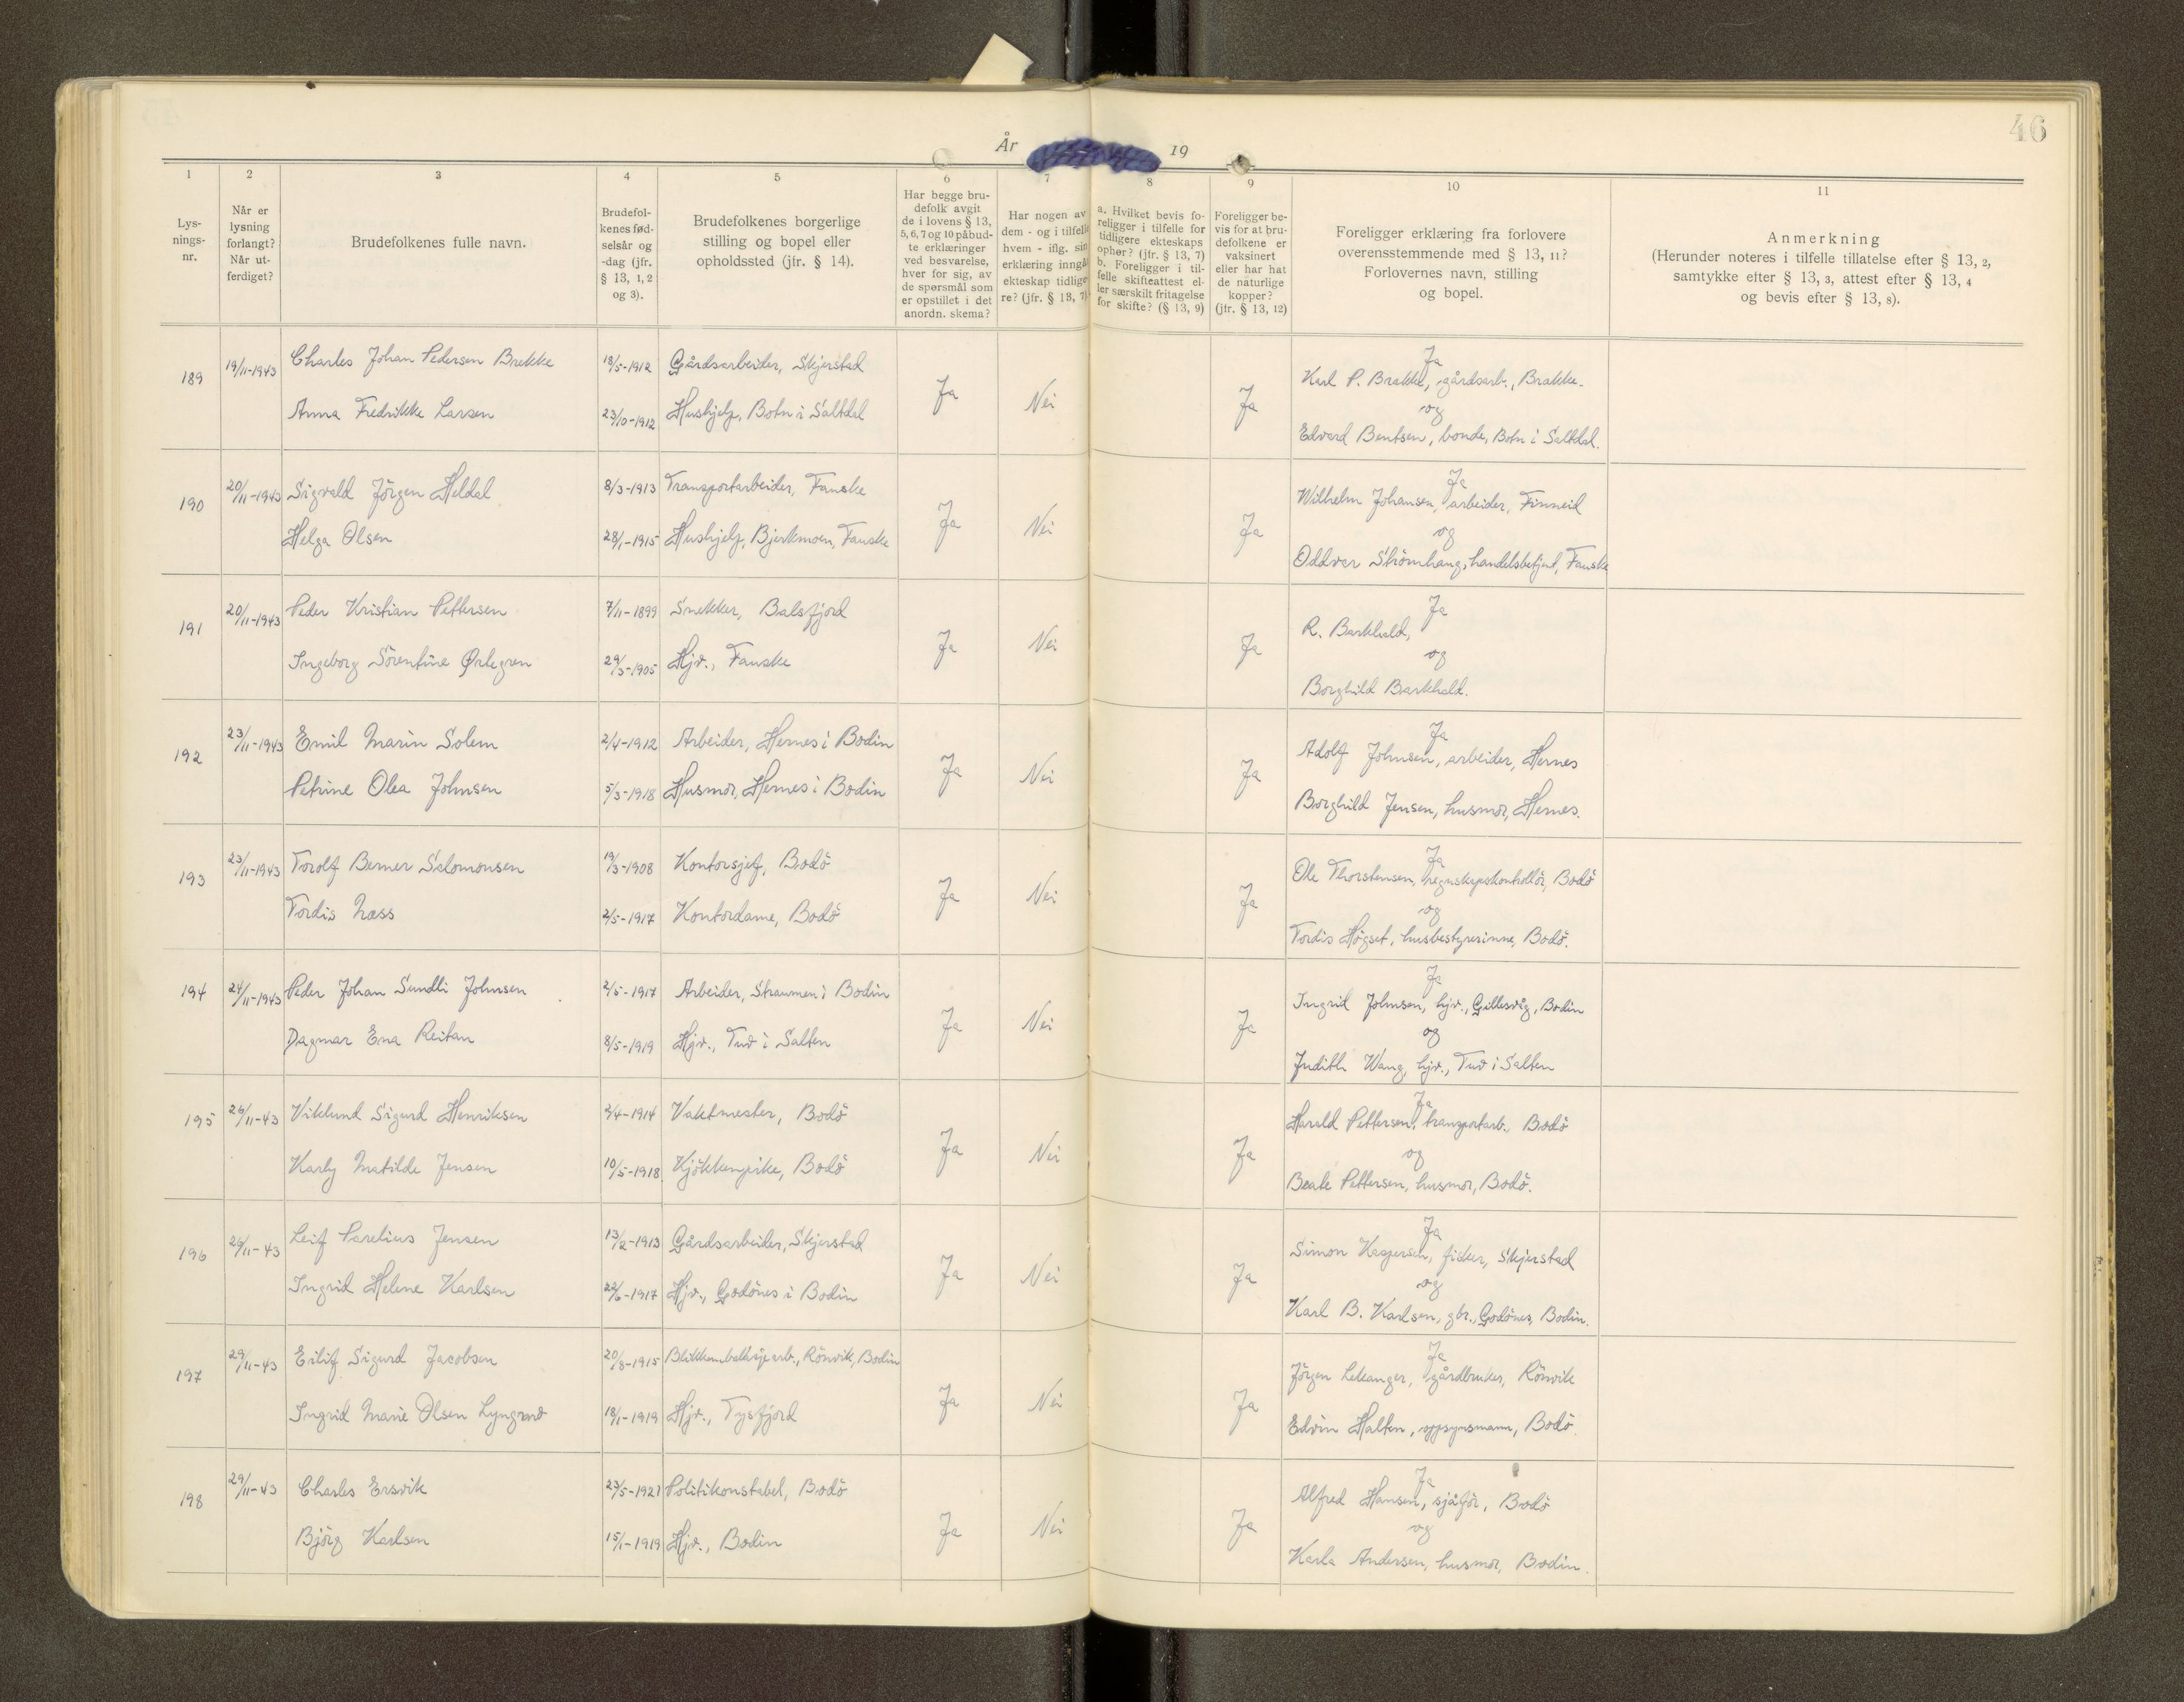 46
År 19
1 2 3 4 5 6 7 8 9 10 11
Lys-
nings-
nr.
Når er
lysning
forlangt?
Når ut-
ferdiget?
Brudefolkenes fulle navn.
Brudefol-
kenes fød-
selsår og
-dag (jfr.
§ 13, 1, 2
og 3).
Brudefolkenes borgerlige
stilling og bopel eller
opholdssted (jfr. § 14).
Har begge bru-
defolk avgit
de i lovens § 13,
5, 6, 7 og 10 påbud-
te erklæringer
ved besvarelse,
hver for sig, av
de spørsmål som
er opstillet i det
anordn. skema?
Har nogen av
dem - og i tilfelle
hvem - iflg. sin
erklæring inngå
ekteskap tidlige
re? (jfr. § 13, 7)
a. Hvilket bevis fo-
religger i tilfelle for
tidligere ekteskaps
ophør? (jfr. § 13, 7)
b. Foreligger i til-
felle skifteattest el-
ler særskilt fritagelse
for skifte? (§ 13, 9)
Foreligger be-
vis for at bru-
defolkene er
vaksinert
eller har hat
de naturlige
kopper?
(jfr. § 13, 12)
Foreligger erklæring fra forlovere
overensstemmende med § 13, 11?
Forlovernes navn, stilling
og bopel.
Anmerkning
(Herunder noteres i tilfelle tillatelse efter § 13, 2,
samtykke efter § 13, 3, attest efter § 13, 4
og bevis efter § 13, 8).
189 19/11-1943 Charles Johan Pedersen Brekke 18/5-1912 Gårdsarbeider, Skjerstad
Anna Fredrikke Larsen 23/10-1912 Hushjelp, Botn i Saltdal
Ja Nei Ja
Ja
Karl P. Brakke, gårdsarb., Brakke.
og
Edvard Bentsen, bonde, Botn i Saltdal.
190 20/11-1943 Sigvald Jörgen Heldal 8/3-1913 Transportarbeider, Fauske
Helga Olsen 28/1-1915 Hushjelp, Bjerkmoen, Fauske
Ja Nei Ja
Ja
Wilhelm Johansen, arbeider, Finneid
og
Oddvar Strömhaug, handelsbetjent, Fauske
191 20/11-1943 Peder Kristian Pettersen 7/11-1899 Snekker, Balsfjord
Ingeborg Sörentine Ørtegren 29/3-1905 Hjv., Fauske
Ja Nei Ja
Ja
R. Barkhald,
og
Borghild Barkhald.
192 23/11-1943 Emil Marin Solem 2/4-1912 Arbeider, Hernes i Bodin
Petrine Olea Johnsen 5/3-1918 Husmor, Hernes i Bodin
Ja Nei Ja
Ja
Adolf Johnsen, arbeider, Hernes
Borghild Jensen, husmor, Hernes.
193 23/11-1943 Torolf Berner Salomonsen 19/3-1908 Kontorsjef, Bodö
Tordis Næss 2/5-1917 Kontordame, Bodö
Ja Nei Ja
Ja
Ole Thorstensen, regnskapskontrollör, Bodö
og
Tordis Högset, husbestyrerinne, Bodö.
194 24/11-1943 Peder Johan Sundli Johnsen 2/5-1917 Arbeider, Straumen i Bodin
Dagmar Ena Reitan 8/5-1919 Hjv., Tuv i Salten
Ja Nei Ja
Ja
Ingrid Johnsen, hjv., Gillesvåg, Bodin
og
Judith Wang, hjv., Tuv i Salten
195 26/11-43 Viklund Sigurd Henriksen 2/4-1914 Vaktmester, Bodö
Karly Matilde Jensen 10/5-1918 Kjökkenpike, Bodö
Ja Nei Ja
Ja
Harald Pettersen, transportarb., Bodö
og
Beate Pettersen, husmor, Bodö.
196 26/11-43 Leif Parelius Jensen 13/2-1913 Gårdsarbeider, Skjerstad
Ingrid Helene Karlsen 22/6-1917 Hjv., Godönes i Bodin
Ja Nei Ja
Ja
Simon Kaspersen, fisker, Skjerstad
og
Karl B. Karlsen, gbr., Godönes, Bodin.
197 29/11-43 Eilif Sigurd Jacobsen 20/8-1915 Blikkemballasje arb., Rönvik, Bodin
Ingrid Marie Olsen Lyngrand 18/1-1919 Hjv., Tysfjord
Ja Nei Ja
Ja
Jörgen Lekanger, gårdbruker, Rönvik
Edvin Halten, oppsynsmann, Bodö.
198 29/11-43 Charles Ersvik 23/5-1921 Politikonstabel, Bodö
Björg Karlsen 15/1-1919 Hjv., Bodin
Ja Nei Ja
Ja
Alfred Hansen, sjåför, Bodö
og
Karla Andersen, husmor, Bodin.